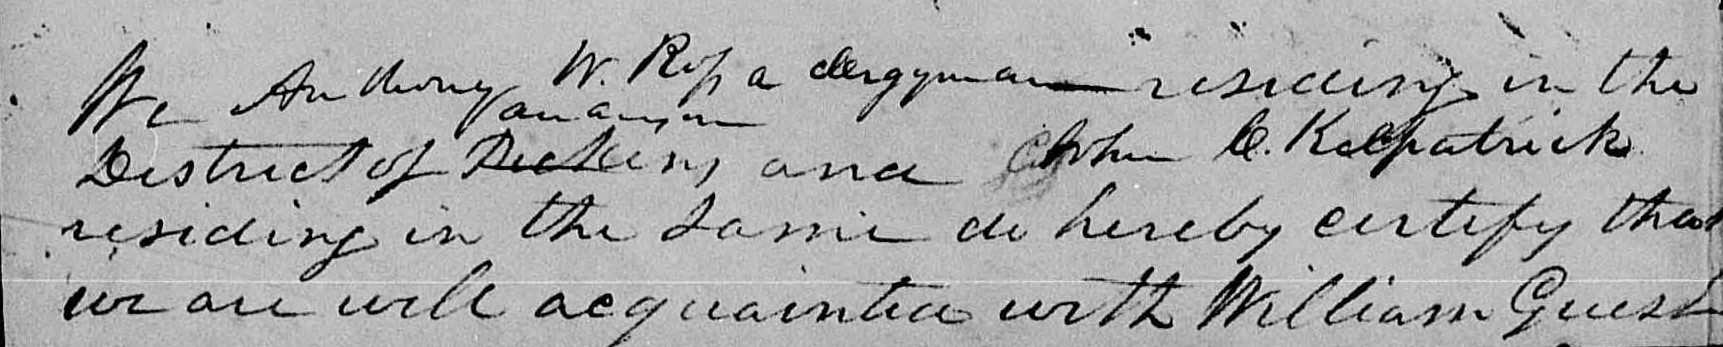 We Anthony W. Ross a clergyman residing in the
District of Pickens and John C. Kilpatrick
residing in the same do hereby certify that
we are well acquainted with William Guest